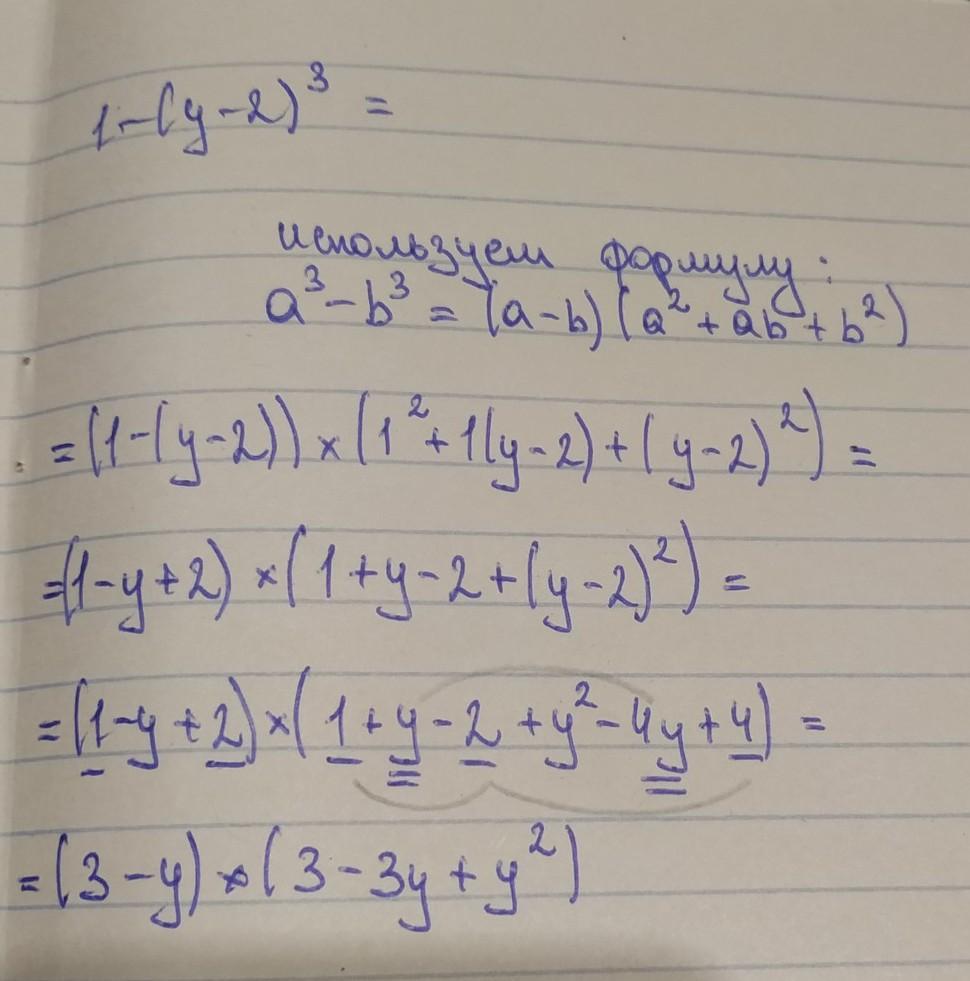 1-(y-2)³ =
используем формулу:
a³-b³ = (a-b)(a²+ab+b²)
=(1-(y-2))×(1²+1(y-2)+(y-2)²) =
=(1-y+2)×(1+y-2+(y-2)²) =
=(1-y+2)×(1+y-2+y²-4y+4) =
=(3-y)×(3-3y+y²)